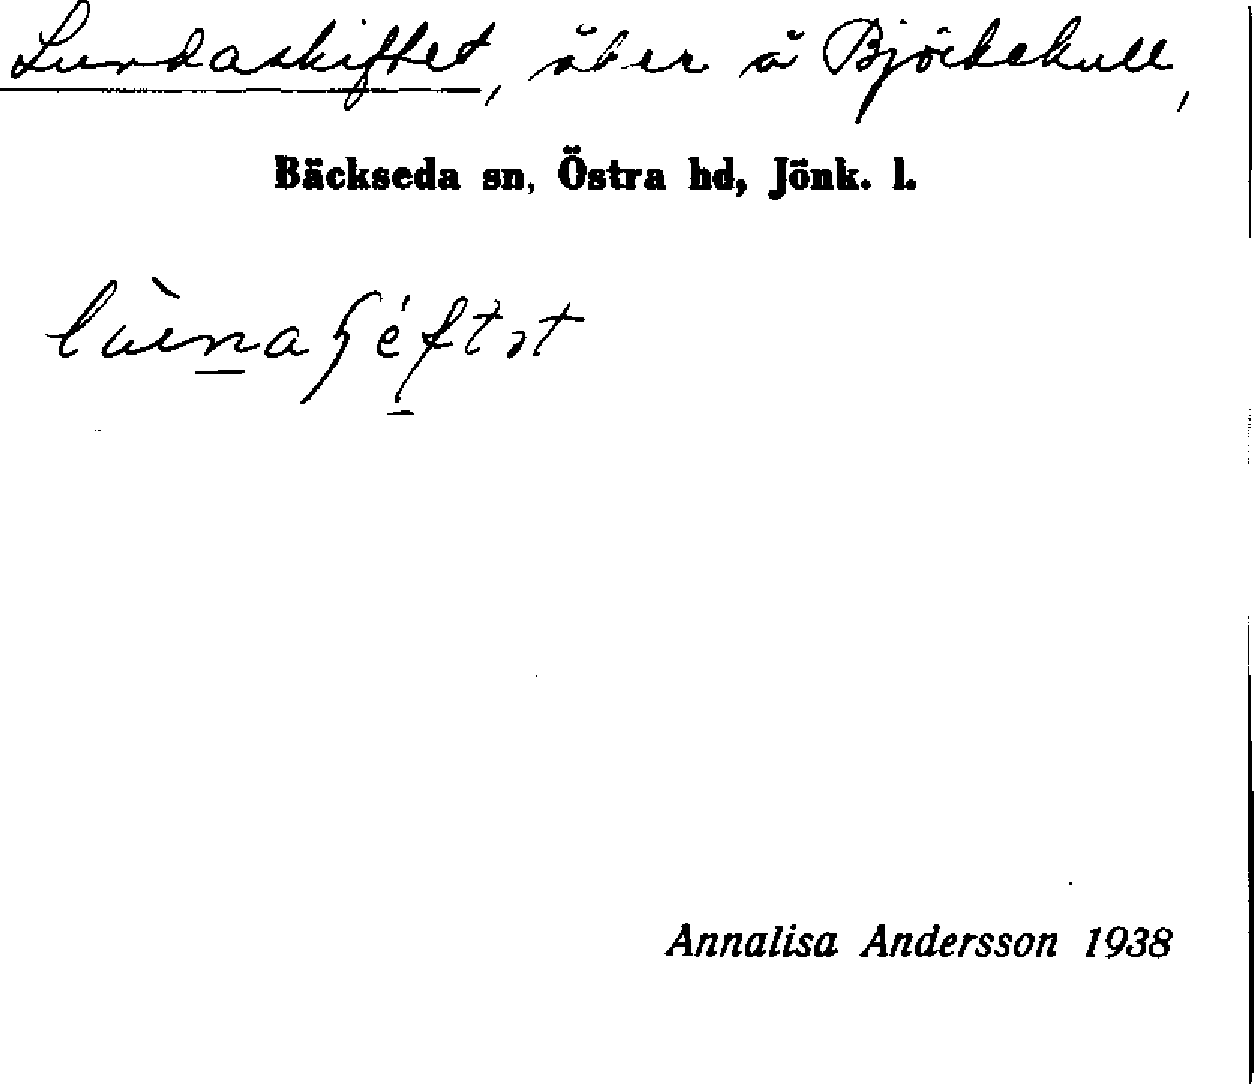 Lundaskiftet, åker å Björkekull,
Bäckseda sn, Östra hd, Jönk. l.
Annalisa Andersson 1938